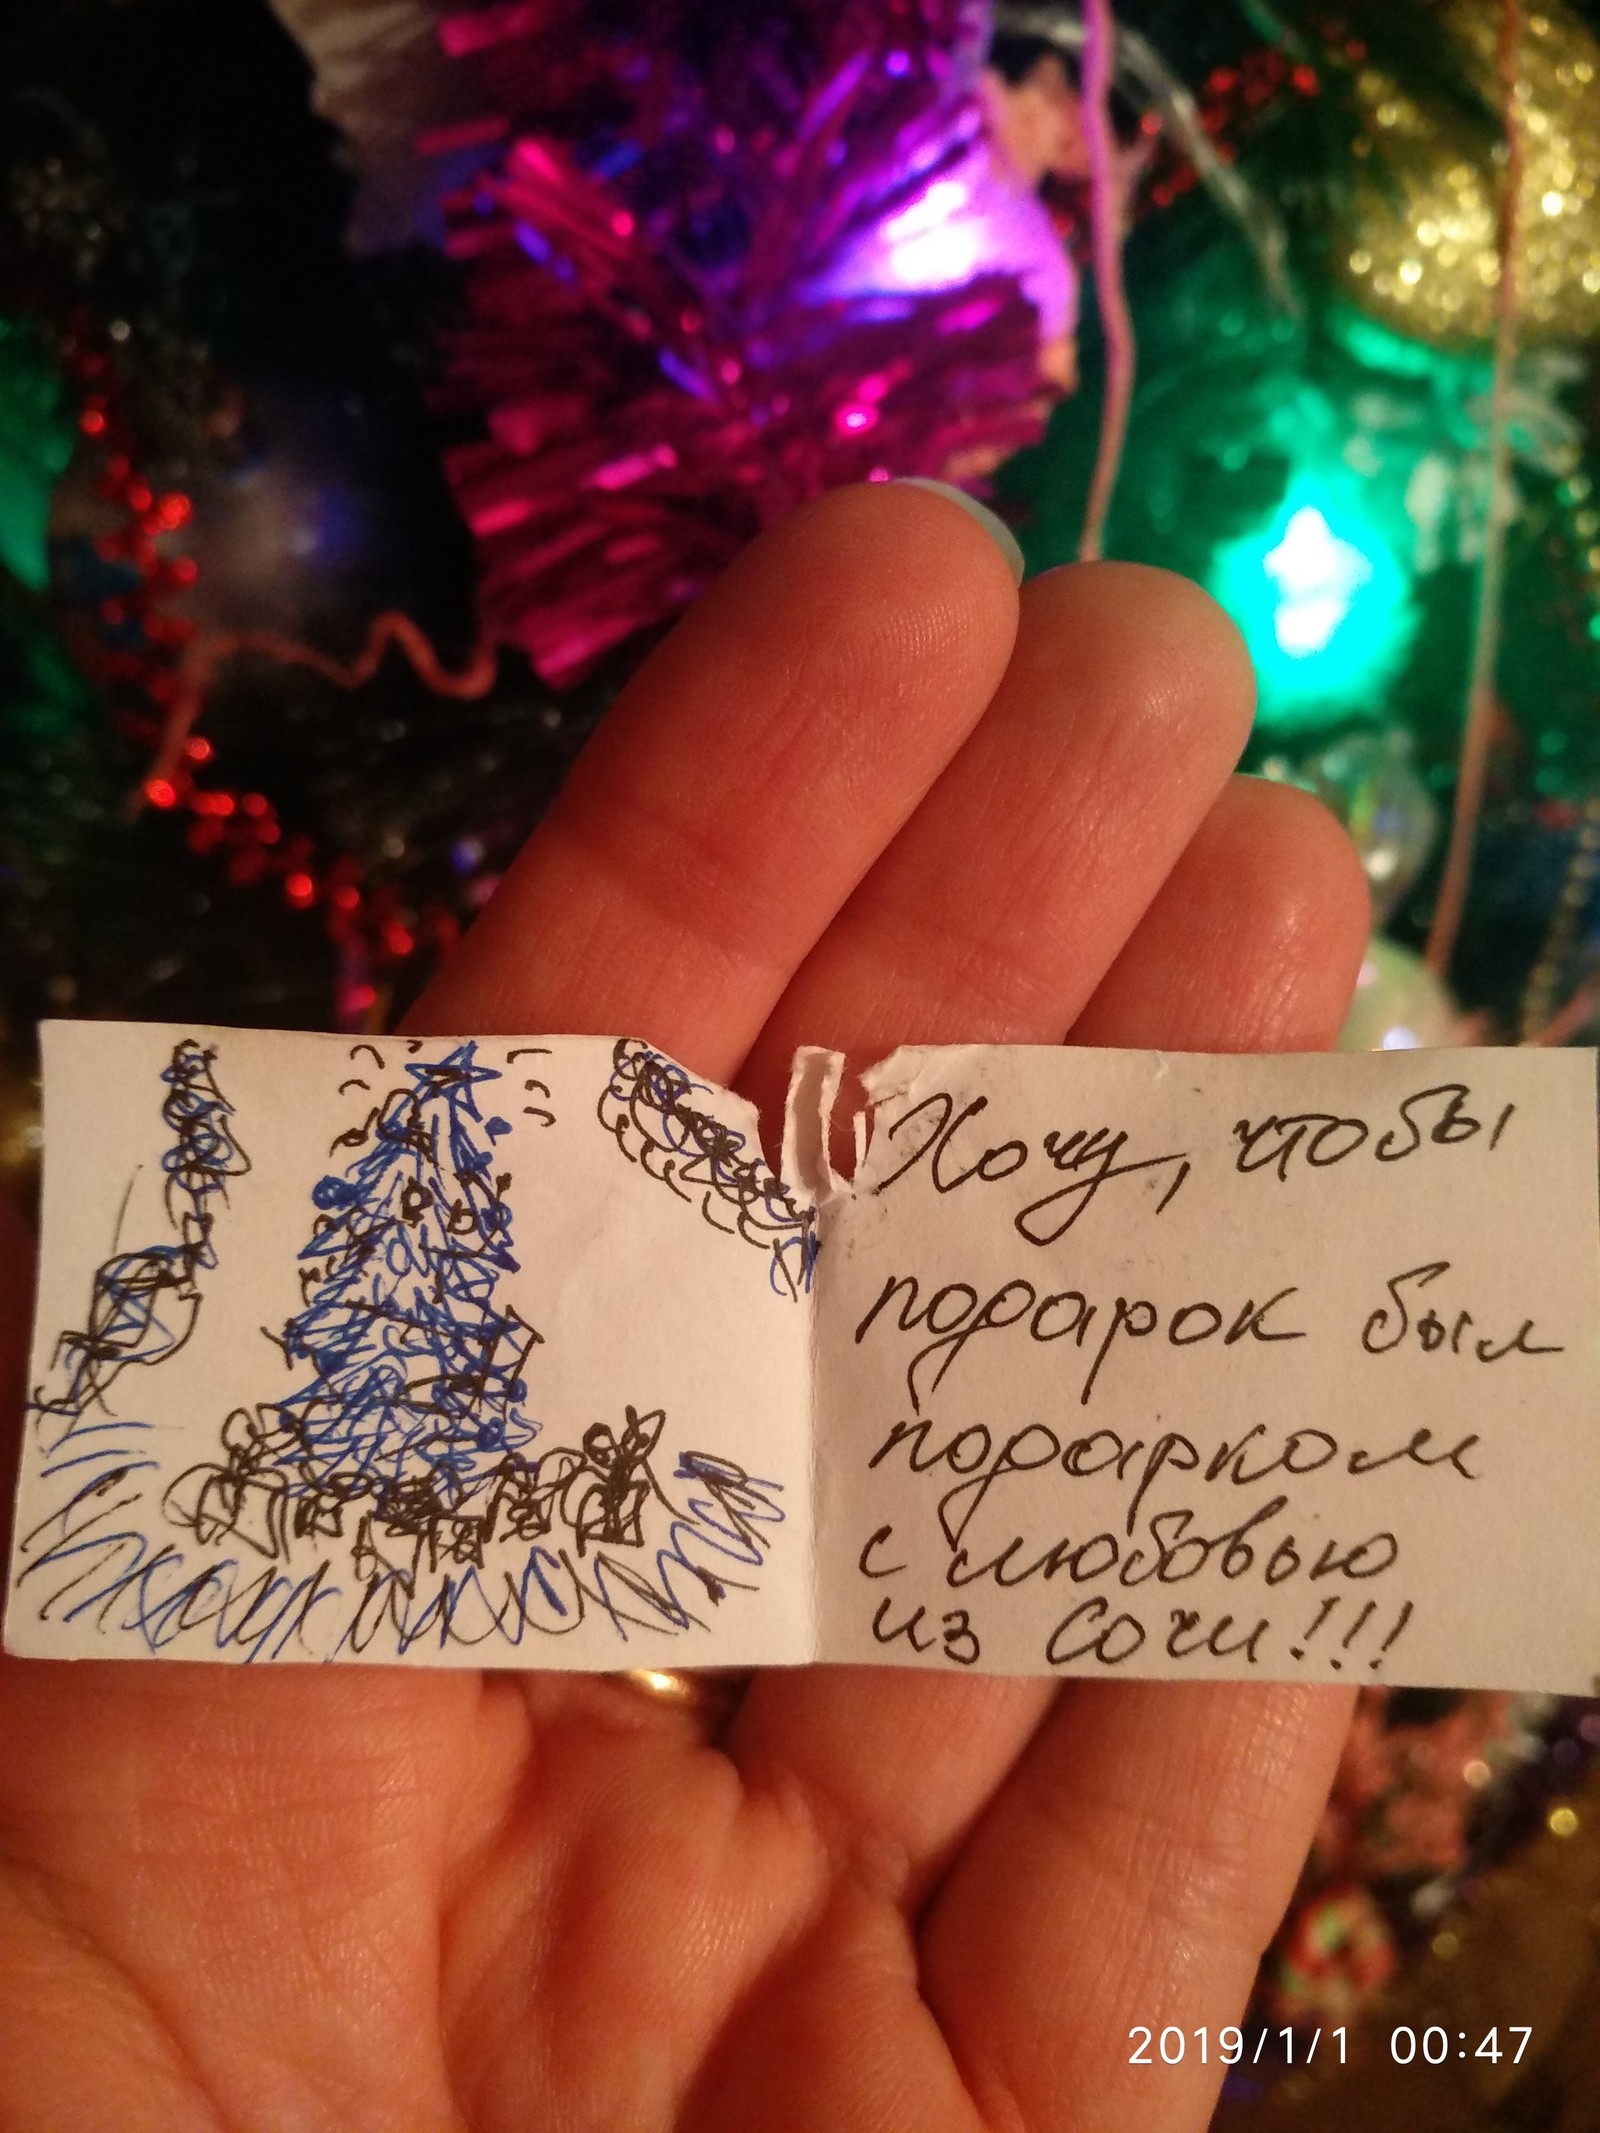 Хочу, чтобы
подарок был
подарком
с любовью
из Сочи!!!
2019/1/1 00:47